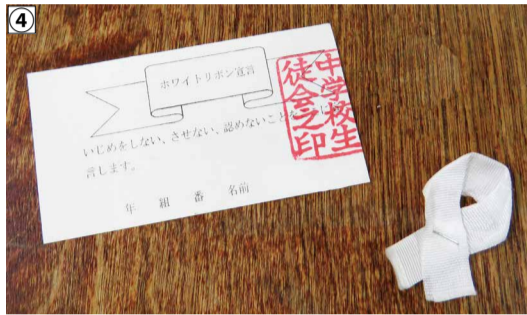 ④
ホワイトリボン宣言
いじめをしない、させない、認めないことを
言します。
年 組 番 名前
中学校生
徒会之印